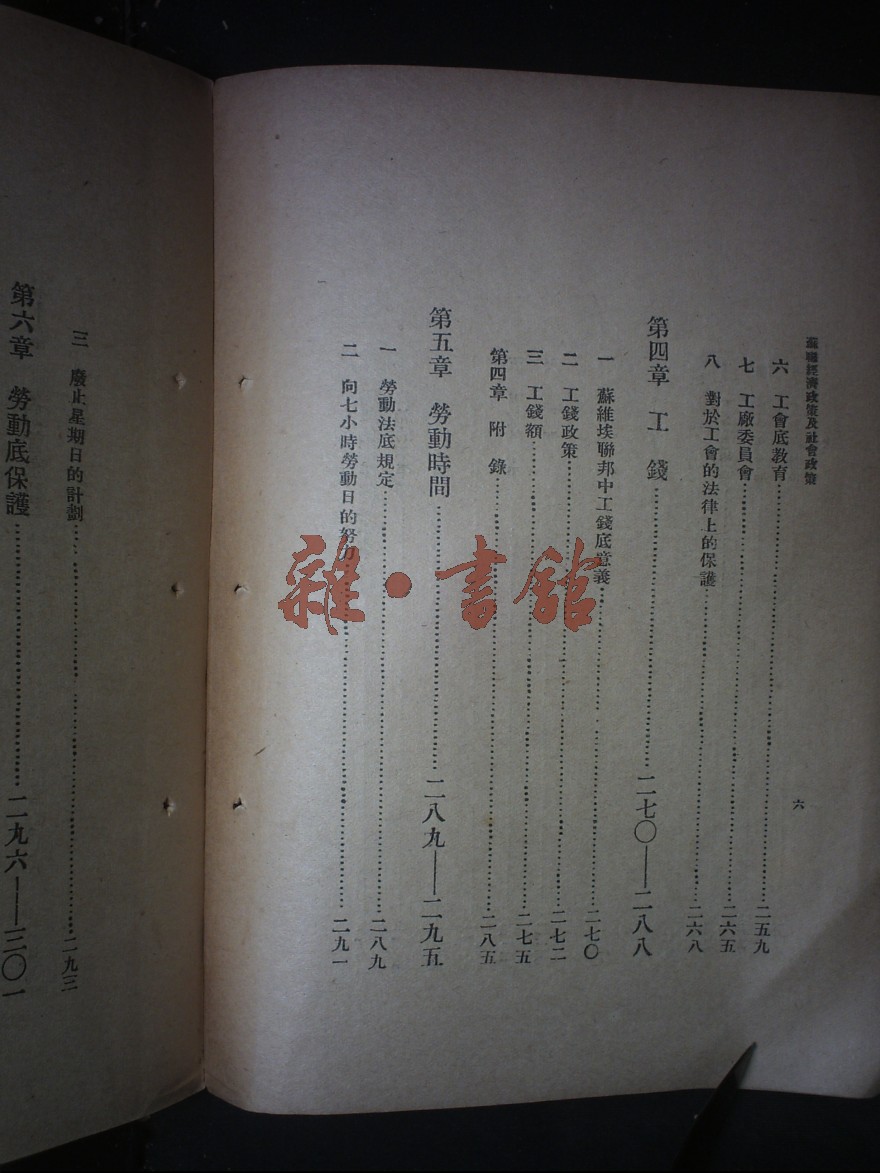 蘇聯經濟政策及社會政策
六
六　工會底教育……二五九
七　工廠委員會……二六五
八　對於工會的法律上的保護……二六八
第四章　工　錢……二七〇——二八八
一　蘇維埃聯邦中工錢底意義……二七〇
二　工錢政策……二七二
三　工錢額……二七五
第四章　附　錄……二八五
第五章　勞動時間……二八九——二九五
一　勞動法底規定……二八九
二　向七小時勞動日的努力……二九一
三　廢止星期日的計劃……二九三
第六章　勞動底保護……二九六——三〇一
雜·書館